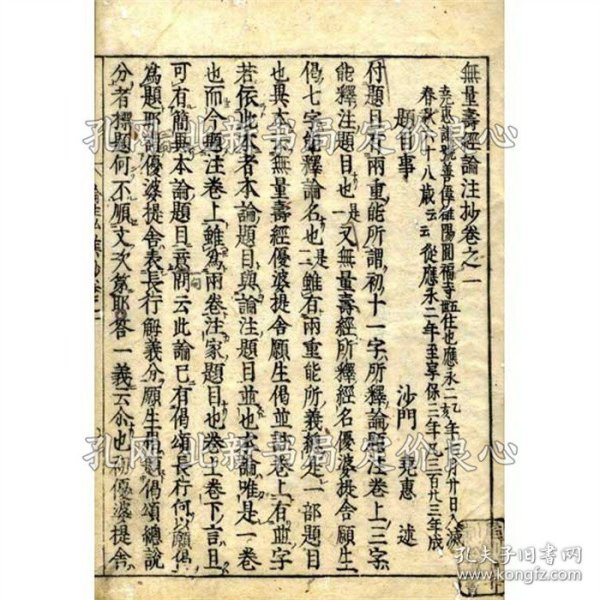 無量壽經論注抄卷之一
堯惠 善偉 洛陽圓福寺 住也應永二乙亥年 月廿日入滅
春秋六十八歲云云從應永二年至享保三年凡三百廿三年成
題目事
沙門 堯惠 述
付題目有兩重能所謂初十一字所釋論題注卷上三字
能釋注題目也一又無量壽經所釋經名優婆提舍願生
偈七字能釋論名也二雖有兩重能所義摠是一部題目
也具本無量壽經優婆提舍願生偈並註卷上有並字
若依此本者本論題目與論注題目並也本論唯是一卷
也而今題注卷上雖為兩卷注家題目也卷上卷下言且
可有簡異本論題目意問云此論已有偈頌長行何以願偈
為題耶謂優婆提舍表長行解義分願生偈顯偈頌總說
分者標題何不順文次第耶答一義云尒也初優婆提舍
孔网 北新书局 定价良心
孔网 北新书局 定价良心
孔夫子旧书网
kongfz.com